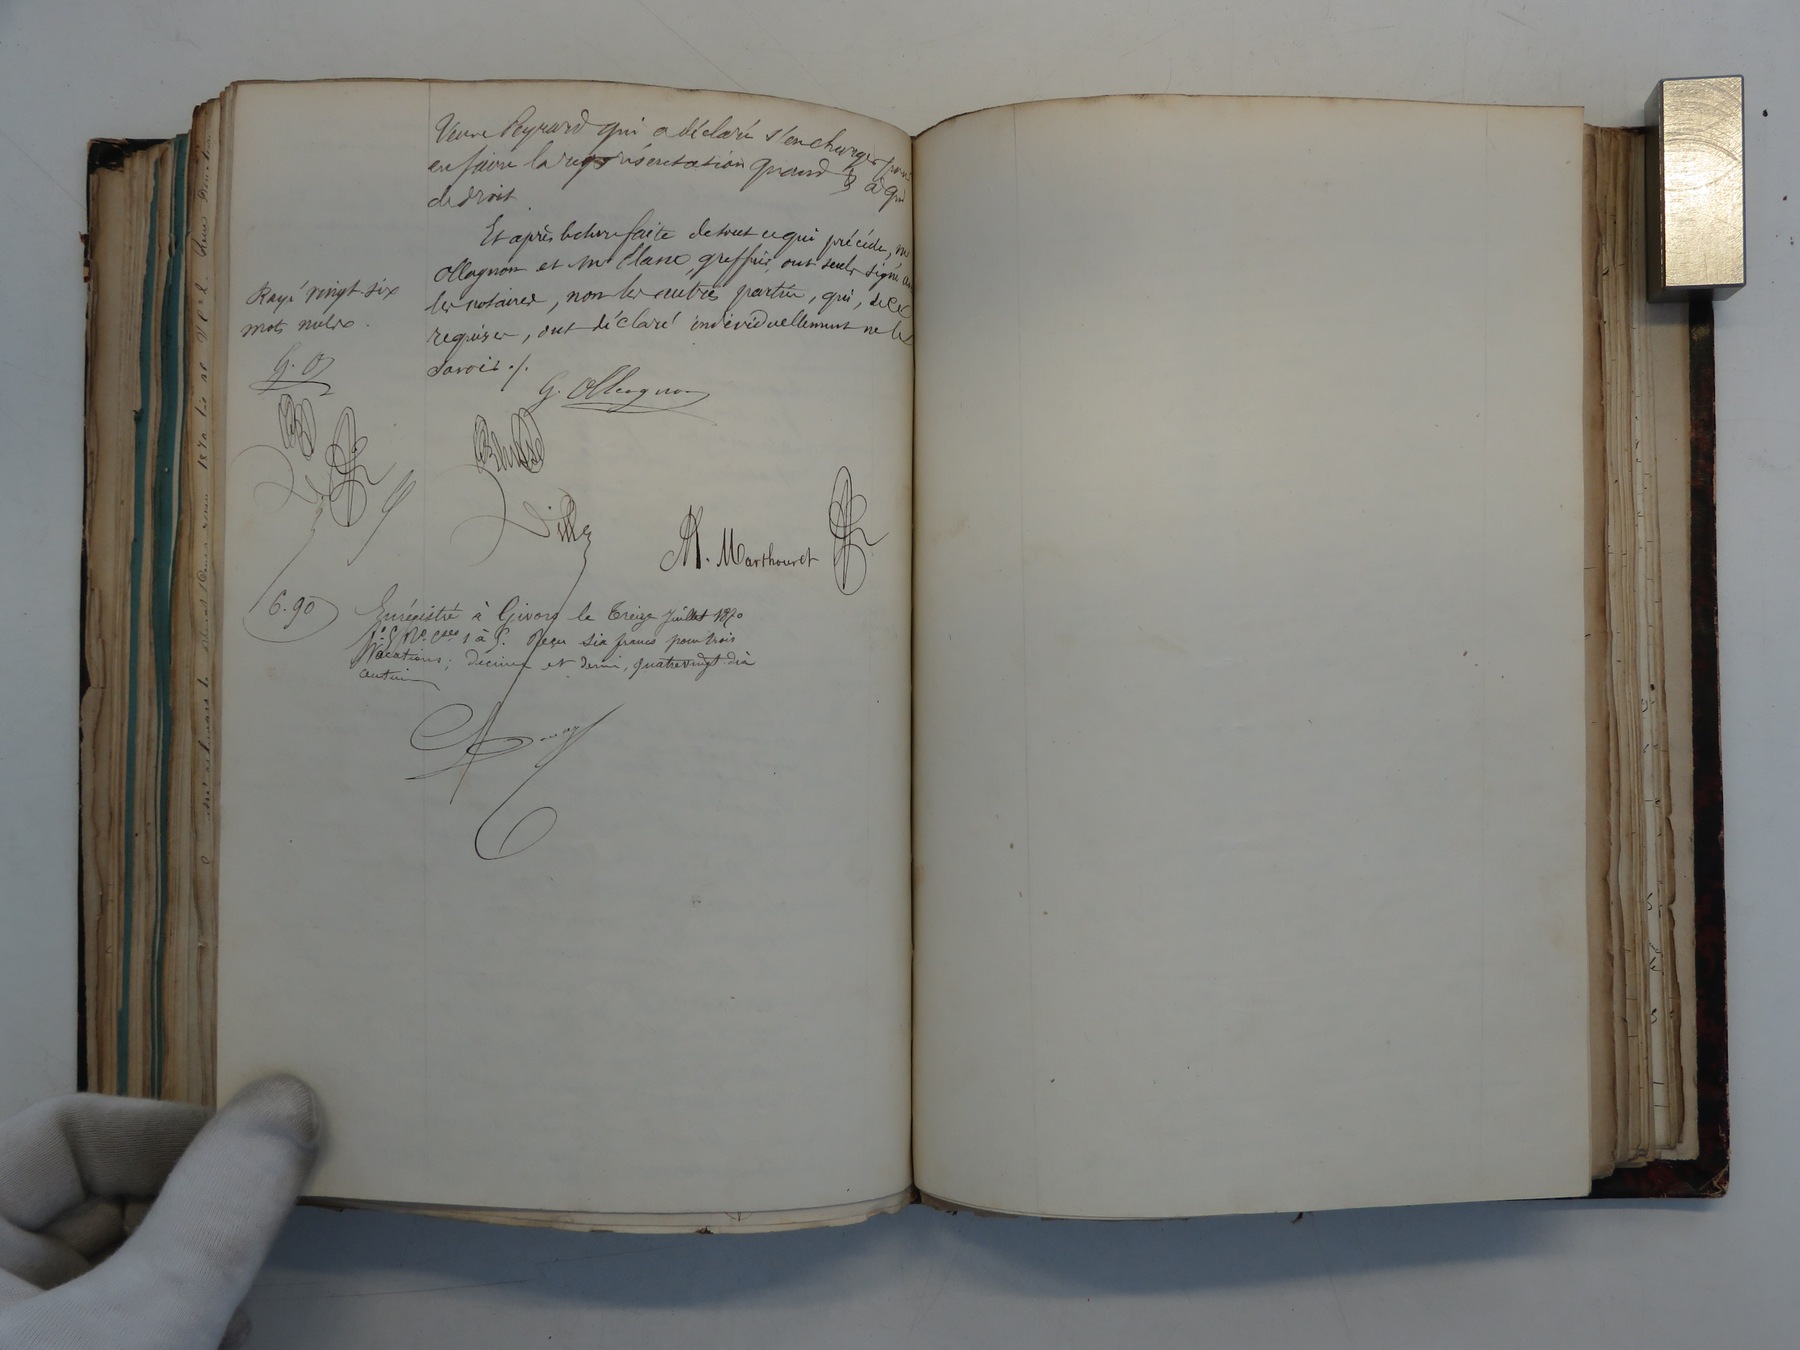 Veuve Peyrard qui a déclaré s'en charger pour
en faire la représentation quand & à qui
de droit.
Et après lecture faite de tout ce qui précède, M
Ollagnon et Mr Blanc, greffier, ont seuls signé avec
les notaires, non les autres parties, qui, de ce
requises, ont déclaré individuellement ne le
savoir ./.
Rayé vingt-six
mots nuls.
G. O
G. Ollagnon
Ville
M. Marthouret
6.90
Enregistré à Givors le Treize Juillet 1870
Cses 1 à 5. Reçu six francs pour trois
Vacations; décime et demi, quatrevingt-dix
centimes